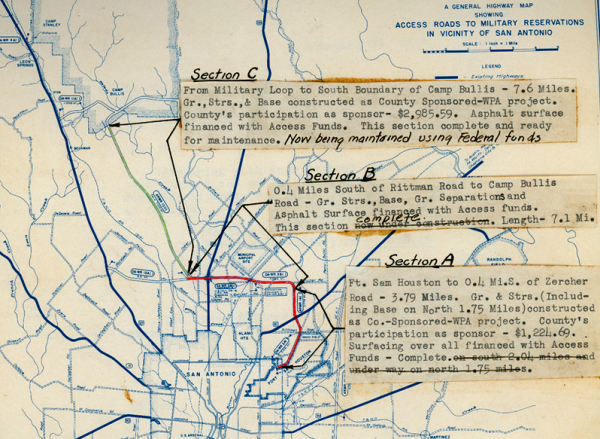 A GENERAL HIGHWAY MAP
SHOWING
ACCESS ROADS TO MILITARY RESERVATIONS
IN VICINITY OF SAN ANTONIO
SCALE: 1 Inch = 1 Mile
LEGEND
Existing Highways
CAMP
STANLEY
LEON
SPRINGS
CAMP
BULLIS
Section C
From Military Loop to South Boundary of Camp Bullis - 7.6 Miles.
Gr.,Strs.,& Base constructed as County Sponsored-WPA project.
County's participation as sponsor- $2,985.59. Asphalt surface
financed with Access Funds. This section complete and ready
for maintenance. Now being maintained using Federal funds
Section B
0.4 Miles South of Rittman Road to Camp Bullis
Road - Gr. Strs.,Base, Gr. Separations and
Asphalt Surface financed with Access funds.
complete.
This section now under construction. Length- 7.1 Mi.
Section A
Ft. Sam Houston to 0.4 Mi.S. of Zercher
Road - 3.79 Miles. Gr. & Strs.(Includ-
ing Base on North 1.75 Miles)constructed
as Co.-Sponsored-WPA project. County's
participation as sponsor - $1,224.69.
Surfacing over all financed with Access
Funds - Complete.on south 2.04 miles and
under way on north 1.75 miles.
RANDOLPH
FIELD
MUNICIPAL
AIRPORT
SITE
ALAMO
HTS
SAN ANTONIO
FORT SAM HOUSTON
U.S. ARSENAL
MARTINEZ